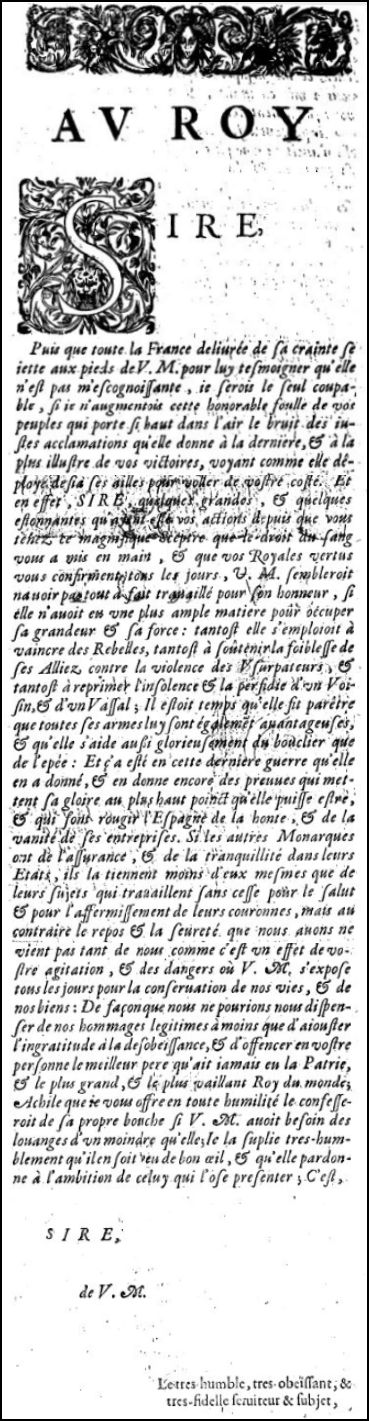 AV ROY
SIRE,
Puis que toute la France deliurée de sa crainte se
iette aux pieds de V. M. pour luy tesmoigner qu'elle
n'est pas m'escognoissante, ie serois le seul coupa-
ble, si ie n'augmentois cette honorable foulle de vos
peuples qui porte si haut dans l'air le bruit des iu-
stes acclamations qu'elle donne à la derniere, & à la
plus illustre de vos victoires, voyant comme elle dé-
ploye desia ses ailles pour voller de vostre costé. Et
en effet, SIRE, quelques grandes, & quelques
estonnantes qu'ayent esté vos actions depuis que vous
tenez le magnifique sceptre que le droit du sang
vous a mis en main, & que vos Royales vertus
vous confirment tous les jours, V. M. sembleroit
n'auoir pas tout à fait trauaillé pour son honneur, si
elle n'auoit en vne plus ample matiere pour occuper
sa grandeur & sa force: tantost elle s'emploioit à
vaincre des Rebelles, tantost à soûtenir la foiblesse de
ses Alliez contre la violence des Vsurpateurs, &
tantost à reprimer l'insolence & la perfidie d'vn Voi-
sin, & d'vn Vassal; Il estoit temps qu'elle fit parêtre
que toutes ses armes luy sont égalemẽt auantageuses,
& qu'elle s'aide aussi glorieusement du bouclier que
de l'epée: Et ç'a esté en cette derniere guerre qu'elle
en a donné, & en donne encore des preuues qui met-
tent sa gloire au plus haut poinct qu'elle puisse estre,
& qui font rougir l'Espagne de la honte, & de la
vanité de ses entreprises. Si les autres Monarques
ont de l'assurance, & de la tranquillité dans leurs
Etats, ils la tiennent moins d'eux mesmes que de
leurs sujets qui trauaillent sans cesse pour le salut
& pour l'affermissement de leurs couronnes, mais au
contraire le repos & la seureté que nous auons ne
vient pas tant de nous comme c'est vn effet de vo-
stre agitation, & des dangers où V. M. s'expose
tous les jours pour la conseruation de nos vies, & de
nos biens: De façon que nous ne pourions nous dispen-
ser de nos hommages legitimes à moins que d'aiouster
l'ingratitude à la desobeïssance, & d'offencer en vostre
personne le meilleur pere qu'ait iamais eu la Patrie,
& le plus grand, & le plus vaillant Roy du monde;
Achile que ie vous offre en toute humilité le confesse-
roit de sa propre bouche si V. M. auoit besoin des
louanges d'vn moindre qu'elle; Ie la suplie tres-hum-
blement qu'il en soit veu de bon œil, & qu'elle pardon-
ne à l'ambition de celuy qui l'ose presenter; C'est,
SIRE,
de V. M.
Le tres-humble, tres-obeïssant, &
tres-fidelle seruiteur & subjet,